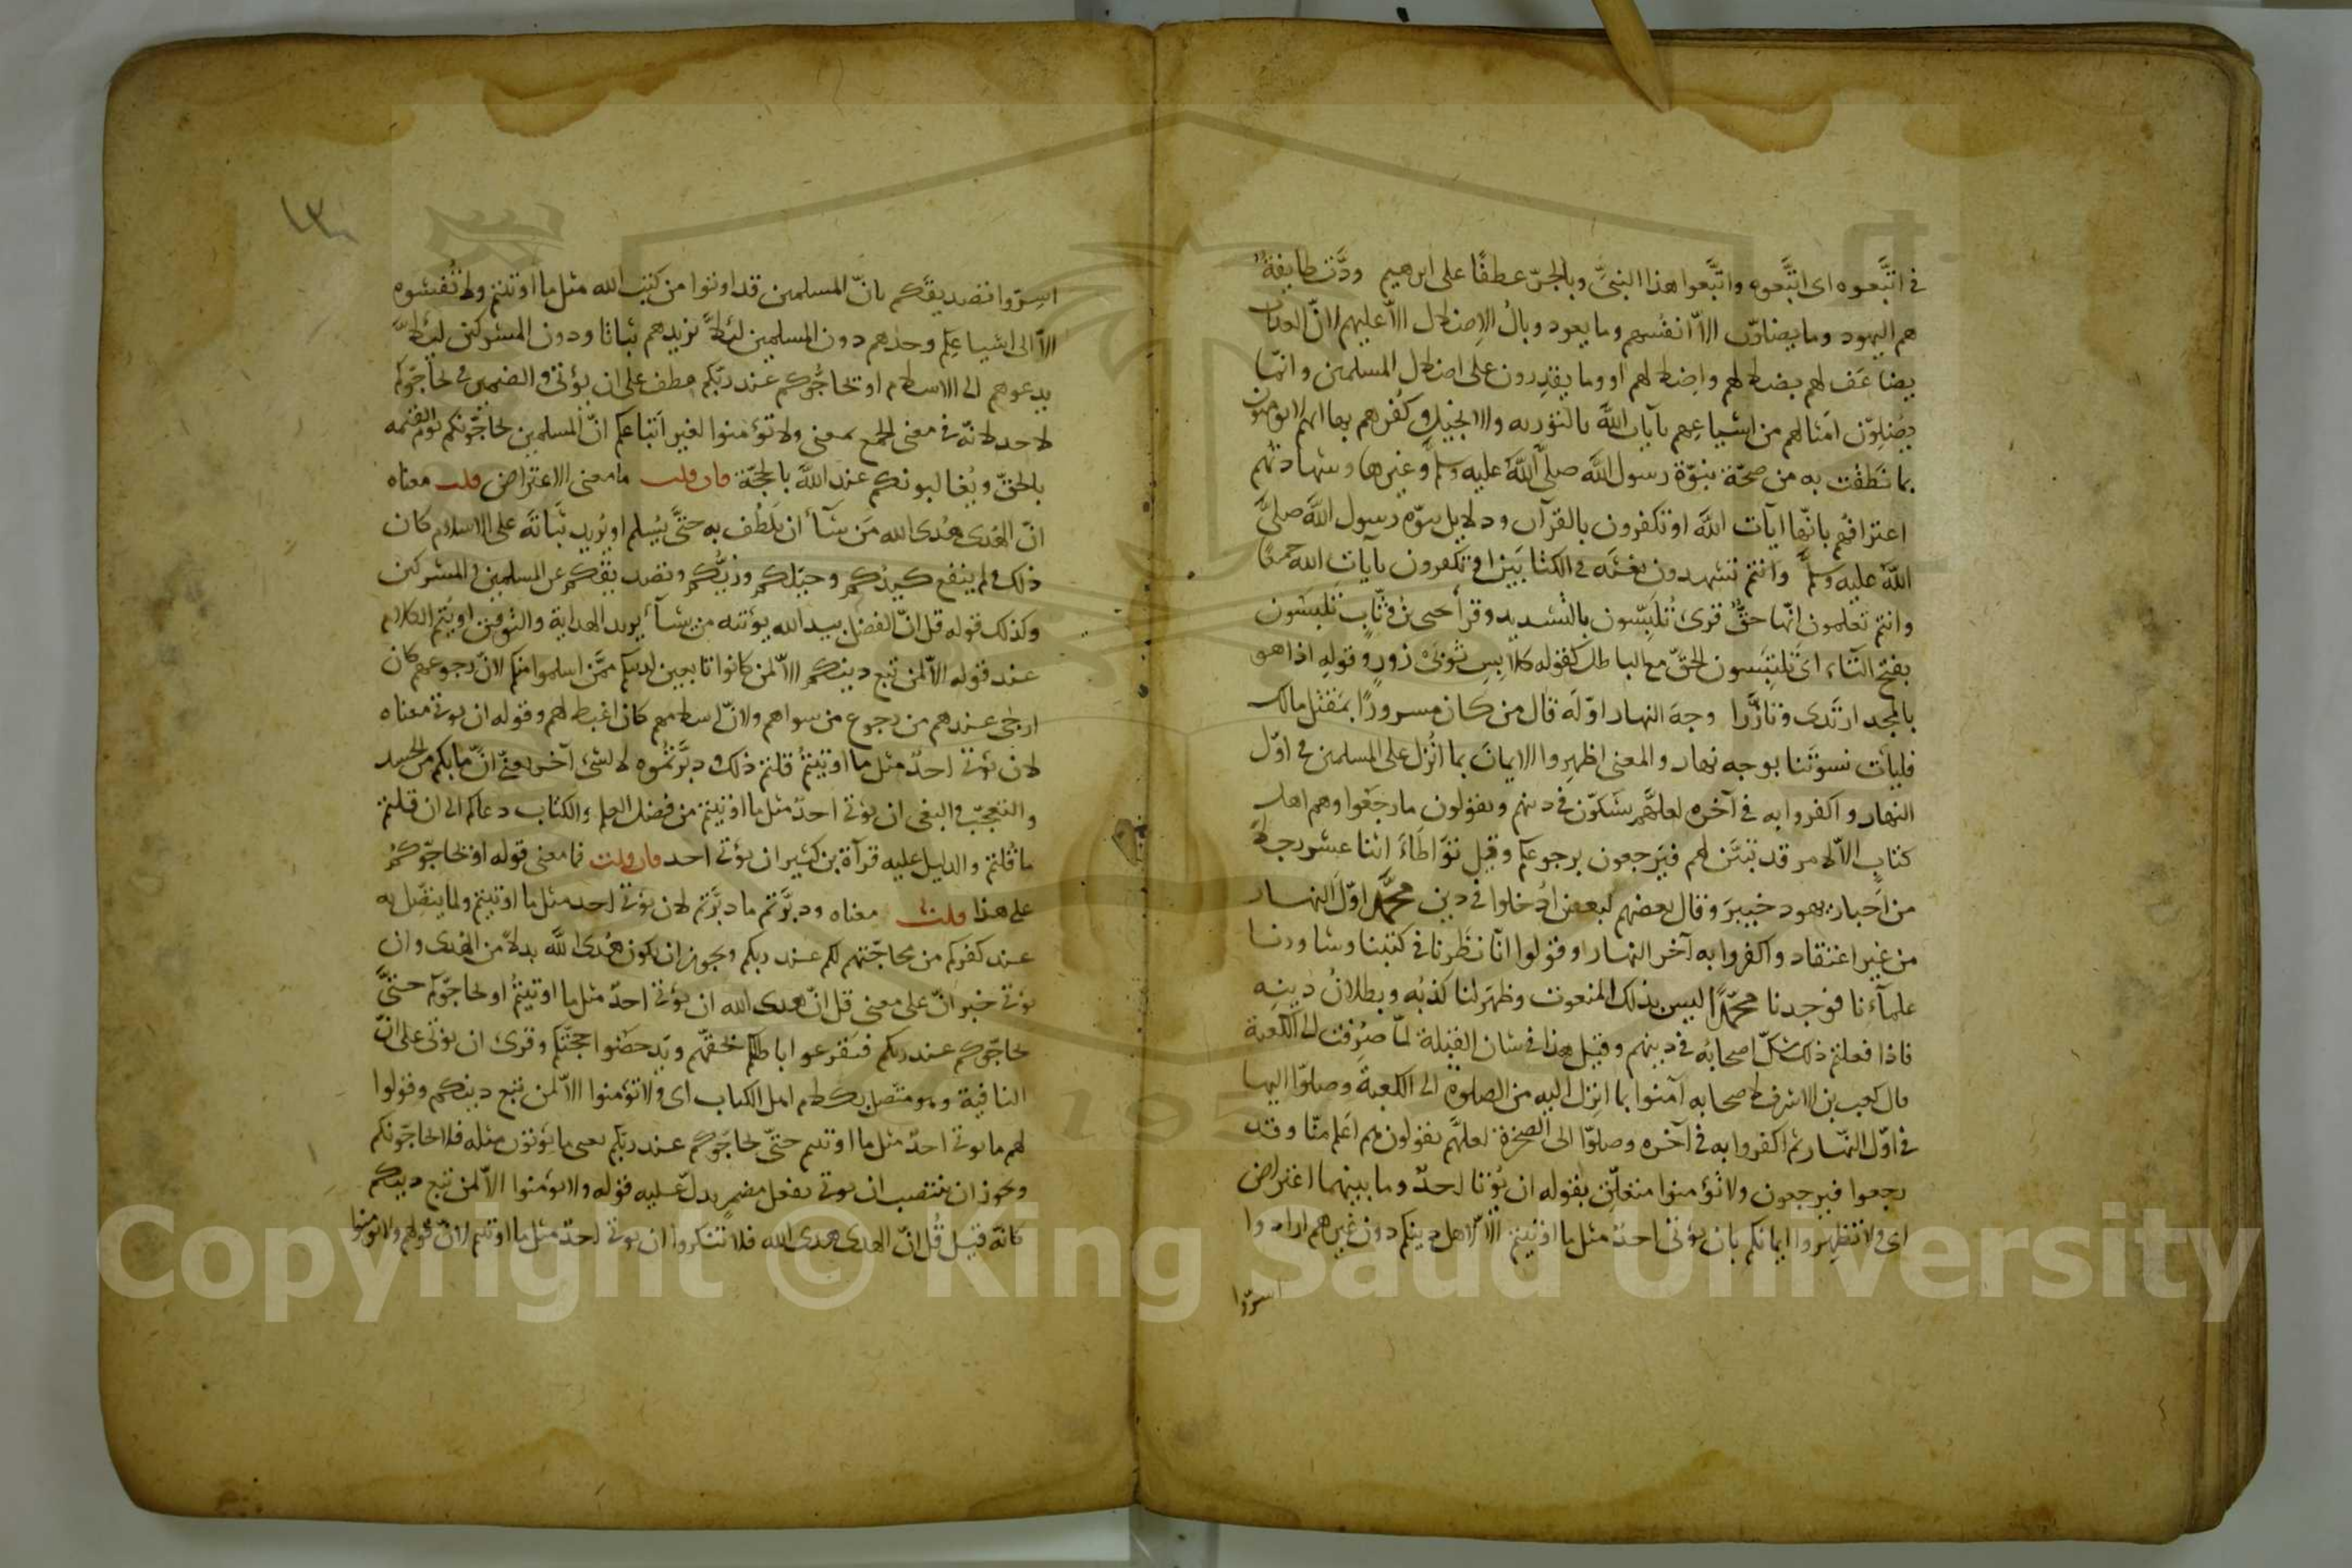 في اتَّبَعوه اى اتَّبَعوه واتَّبَعوا هذا النبيَّ وبالجرّ عطفًا على ابرهيم ودَّت طايفةٌ
هم اليهود وما يضلوّن الاّ انفُسهم وما يعود وبالُ الاِضلال الاّ عليهم لانّ العذاب
يضاعَف لهم بضلالهم واِضلالهم او وما يقدِرون على اضلال المسلمين وانّما
يُضِلّون اَمثالهم من اشياعِهم بآيات اللّه بالتوريه والانجيل وكُفرهم بها انهم لا يومنون
بما نَطَقَت به من صحّة نبوّة رسول اللّه صلى اللّه عليه وسلم وغيرها وشهادتهم
اعترافُهم بانّها آيات اللّه او تكفرون بالقرآن ودلايل نبوّه رسول اللّه صلى
اللّه عليه وسلم وانتم تشهدون نعتَه في الكتابَين او تكفرون بآيات الله جميعًا
وانتم تعلمون انّها حقٌّ قرئ تُلبِّسون بالتشديد وقرأ يحيى بنُ وثّاب تلبَسون
بفتح البآء اى تلبَسون الحقّ مع الباطل كقوله كلابسِ ثوبَىْ زورٍ وقولِه اذا هو
بالمجد ارتدى وتازَّرا وجهَ النهار اوّلَه قال من كان مسرورًا بمَقتل مالك
فليأت نسوتَنا بوجه نهار والمعنى اظهِروا الايمانَ بما اُنزل على المسلمين في اوّل
النهار واكفروا به في آخره لعلّهم يشكّون في دينهم ويقولون ما رجَعوا وهم اهل
كتابٍ الاّ لامر قد تبيَّن لهم فيَرجعون برجوعكم وقيل تَوَاطَأَ اثنا عشر رجلاً
من اَحبار يهود خيبرَ وقال بعضهم لبعض اُدخلوا في دين محمّد اوّل النهار
من غير اعتقاد واكفروا به آخر النهار وقولوا انّا نظَرنا في كتبنا وشاورنا
علمآءَنا فوجدنا محمّدًا ليس بذلك المنعوت وظهَر لنا كذبُه وبطلانُ دينِه
فاذا فعلتم ذلك شكّ اصحابُه في دينهم وقيل هذا في شان القبلة لمّا صُرِفت الى الكعبة
قال كعب بن الاشرف لاصحابه آمنوا بما انزِل اليه من الصلوة الى الكعبة وصلّوا اليها
في اوّل النّهار ثم اكفروا به في آخره وصلّوا الى الصخرة لعلّهم يقولون هم اَعلم منّا وقد
رجعوا فيرجعون ولا تؤمنوا متعلّق بقوله ان يُؤتا احدٌ وما بينهما اعتراض
اى ولا تظهِروا ايمانكم بان يؤتى احدٌ مثل ما اوتيتم الاّ لاهل دينكم دون غيرهم ارادوا
اسرّوا
١٣٠
اسِرّوا تصديقَكم بانّ المسلمين قد اوتوا من كتب الله مثل ما اوتيتم ولا تُفشوه
الاّ الى اشياعِكم وحدَهم دون المسلمين لئلاّ يزيدهم ثباتا ودون المشركين لئلاّ
يدعوهم الى الاسلام او يحاجّوكم عند ربّكم عطف على ان يؤتى والضمير في يحاجّوكم
لاحد لانّه في معنى الجمع بمعنى ولا تؤمنوا لغير اَتباعكم انّ المسلمين يحاجّونكم يوم القيمه
بالحقّ ويُغالبونكم عند اللّه بالحجّة فان قلت ما معنى الاعتراض قلت معناه
انّ الهُدى هُدى الله مَن شَآءَ ان يَلطُف به حتى يُسلم او يُريد ثَباتَه على الاسلام كان
ذلك ولم ينفع كيدُكم وحيَلكم وزيُّكم وتصديقكم عن المسلمين والمشركين
وكذلك قوله قل انّ الفضل بيد الله يؤتيه من يشآءُ يريد الهداية والتوفيق او يُتم الكلام
عند قوله الاّ لمن تبع دينكم الاّ لمن كانوا تابعين لدينكم ممّن اسلموا منكم لانّ رجوعهم كان
ارجى عندهم من رجوع من سواهم ولانّ اسلامهم كان اغيظ لهم وقوله ان يوتى معناه
لان يُؤتى احدٌ مثل ما اوتيتمُ قلتم ذلك ودبَّرتمُوه لا لشئ آخر يعنى انّ ما بكم من الحسد
والتعجّب والبغى ان يؤتى احدٌ مثل ما اوتيتم من فضل العلم والكتاب دعاكم الى ان قلتم
ما قُلتم والدليل عليه قرآة بن كثير ان يؤتى احد فان قلت فما معنى قوله او يحاجّوكم
على هذا قلت معناه ودبَّرتم ما دبَّرتم لان يؤتى احد مثل ما اوتيتم ولما يتصِّل به
عند كفركم من محاجّتهم لكم عند ربكم ويجوز ان يكون هُدى اللّه بدلاً من الهُدى وان
يؤتى خبر انّ على معنى قل انّ هدى الله ان يؤتى احدٌ مثل ما اوتيتمُ او يحاجّوكم حتّى
يحاجّوكم عند ربكم فيقرعوا باطلكم بحقّهم ويُدحِضوا حجّتكم وقرئ ان يؤتى على انّ
النافية وهو متّصل بكلام اهل الكتاب اى ولا تؤمنوا الاّ لمن تبع دينكم وقولوا
لهم ما يوتى احدٌ مثل ما اوتيتم حتّى يحاجّوكم عند ربّكم يعنى ما يؤتون مثله فلا يحاجّونكم
ويجوز ان ينتصب ان يوتى بفعل مضمر يدلّ عليه قوله ولا تؤمنوا الاّ لمن تبع دينكم
كانّه قيل قُل انّ الهدى هدى الله فلا تنكروا ان يوتى احدٌ مثل ما اوتيتم لانّ قولهم ولا تومنوا
Copyright © King Saud University
1957